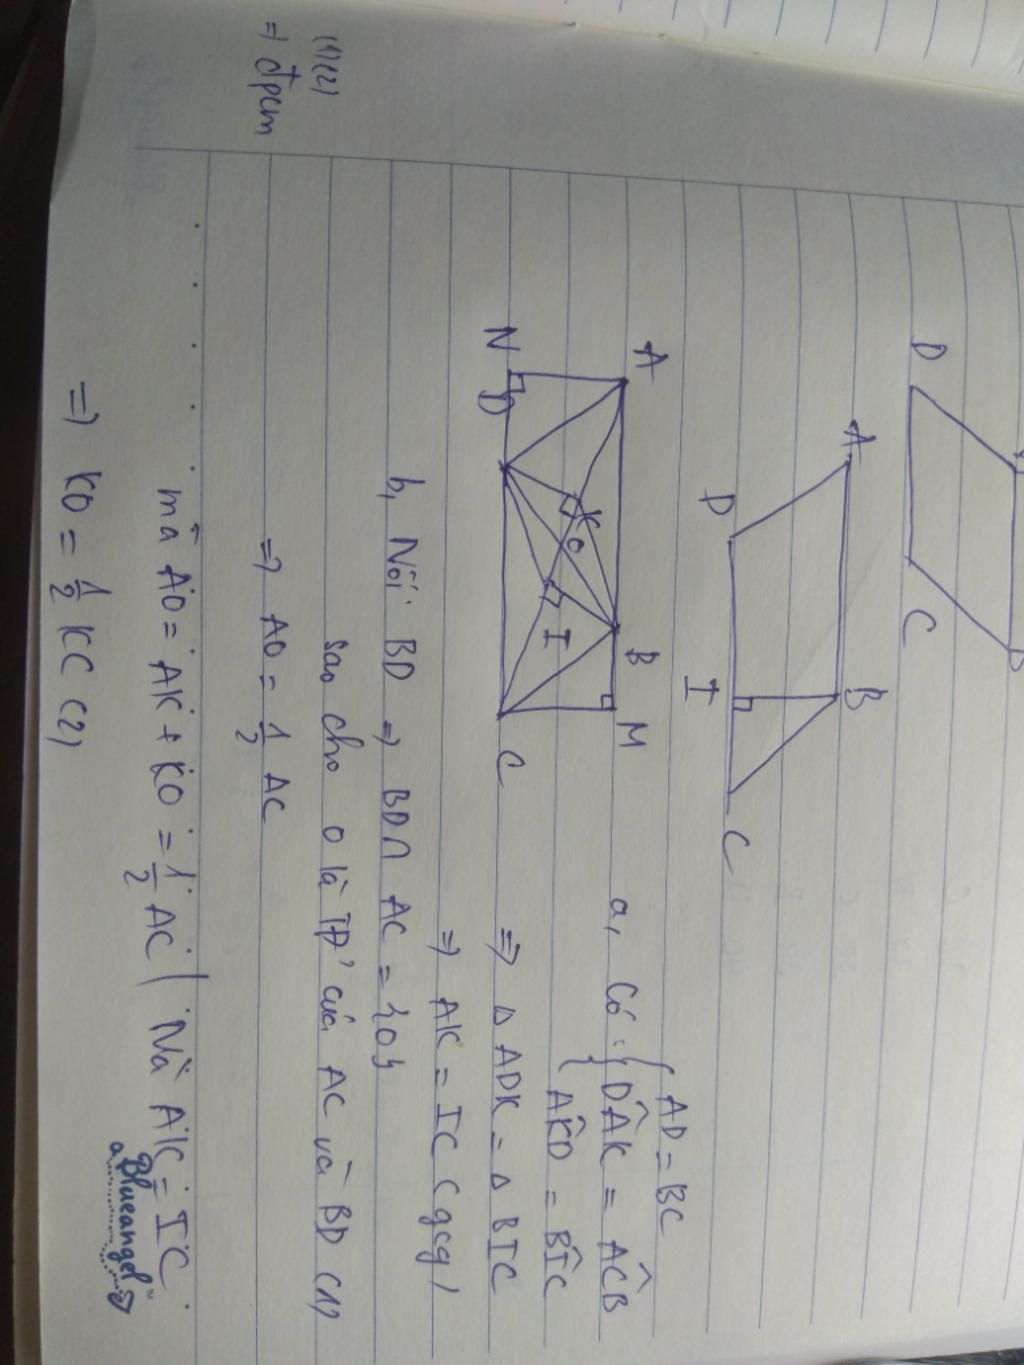 D
C
B
A
B
D
I
C
A
B
M
N
D
K
O
I
C
a, Có : { AD = BC
DÂK = AĈB
AK̂D = BÎC
=> Δ ADK = Δ BIC
=> AK = IC (gcg)
b, Nối BD => BD ∩ AC = {O}
sao cho O là TĐ' của AC và BD (1)
=> AO = 1/2 AC
mà AO = AK + KO = 1/2 AC | Mà AK = IC
=> KO = 1/2 KC (2)
(1)(2)
=> đpcm
Blueangel~